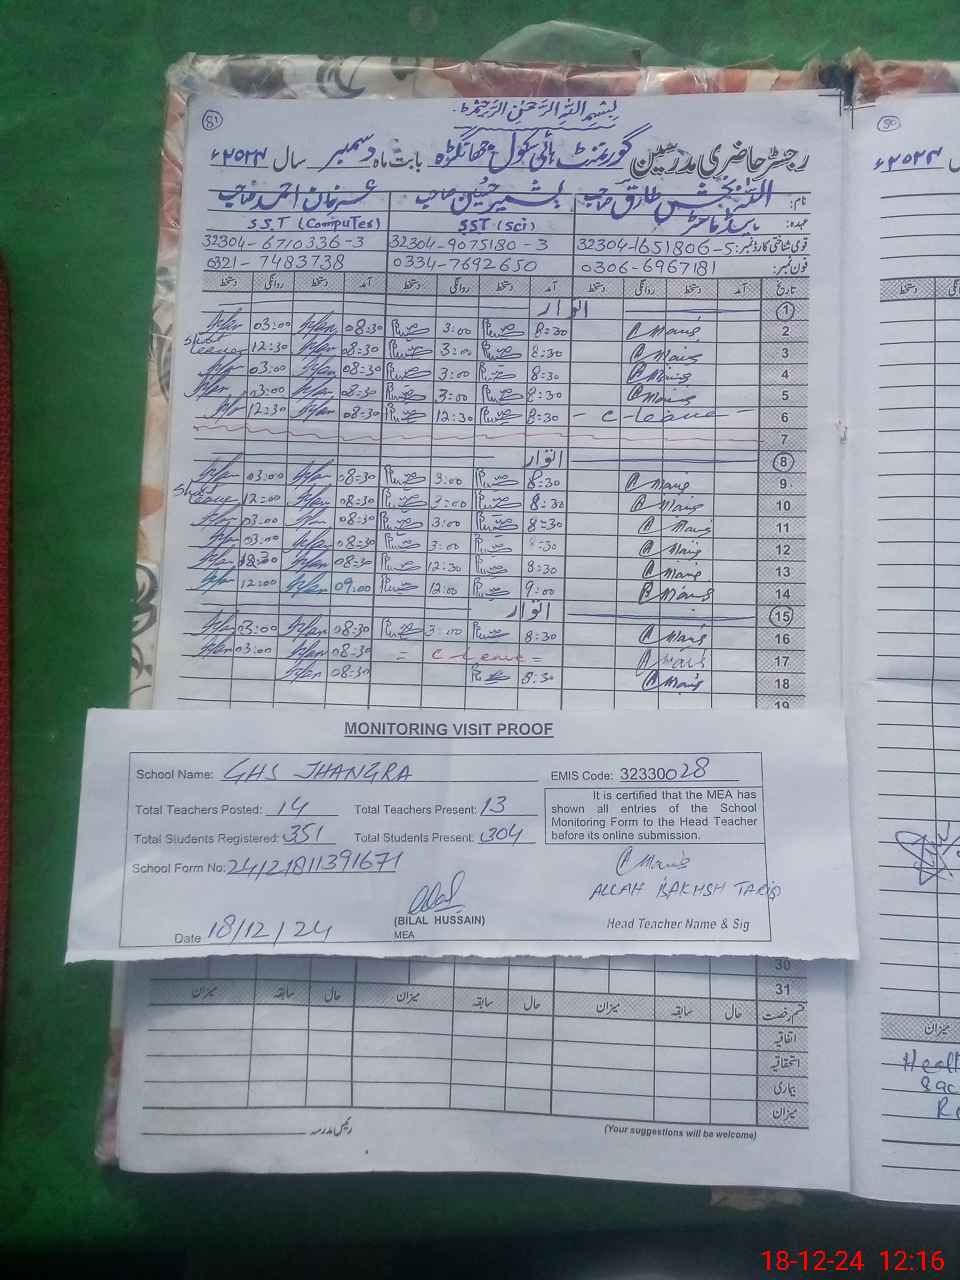 بسم اللہ الرحمٰن الرحیم
81
رجسٹر حاضری مدرسین گورنمنٹ ہائی سکول جھانگڑہ بابت ماہ دسمبر سال ۲۰۲۴ء
نام: اللہ بخش طارق صاحب بشیر حسین صاحب عرفان احمد صاحب
عہدہ: ہیڈ ماسٹر SST (Sci) S.S.T (Computer)
قومی شناختی کارڈ نمبر: 32304-1651806-5 32304-9075180-3 32304-6710336-3
فون نمبر: 0306-6967181 0334-7692650 0321-7483738
تاریخ آمد دستخط روانگی دستخط آمد دستخط روانگی دستخط آمد دستخط روانگی دستخط
1 اتوار
2 8:30 3:00 08:30 03:00
3 8:30 3:00 08:30 12:30 leave
4 8:30 3:00 08:30 03:00
5 8:30 3:00 08:30 03:00
6 - C-leave - 8:30 12:30 08:30 12:30
7
8 اتوار
9 8:30 3:00 08:30 03:00
10 8:30 3:00 08:30 12:00 leave
11 8:30 3:00 08:30 03:00
12 8:30 3:00 08:30 03:00
13 8:30 12:30 08:30 12:30
14 9:00 12:00 09:00 12:00
15 اتوار
16 8:30 3:00 08:30 03:00
17 = C Leave = 08:30 03:00
18 8:30 08:30
19
MONITORING VISIT PROOF
School Name: GHS JHANGRA EMIS Code: 32330028
Total Teachers Posted: 14 Total Teachers Present: 13
Total Students Registered: 351 Total Students Present: 304
School Form No: 24121811391671
It is certified that the MEA has
shown all entries of the School
Monitoring Form to the Head Teacher
before its online submission.
ALLAH BAKHSH TARIQ
Head Teacher Name & Sig
(BILAL HUSSAIN)
MEA
Date 18/12/24
30
31
قسم رخصت حال سابقہ میزان حال سابقہ میزان حال سابقہ میزان
اتفاقیہ
استحقاقیہ
بیماری
میزان
رئیس مدرسہ
(Your suggestions will be welcome)
۲۰۲۴ء
میزان
18-12-24 12:16